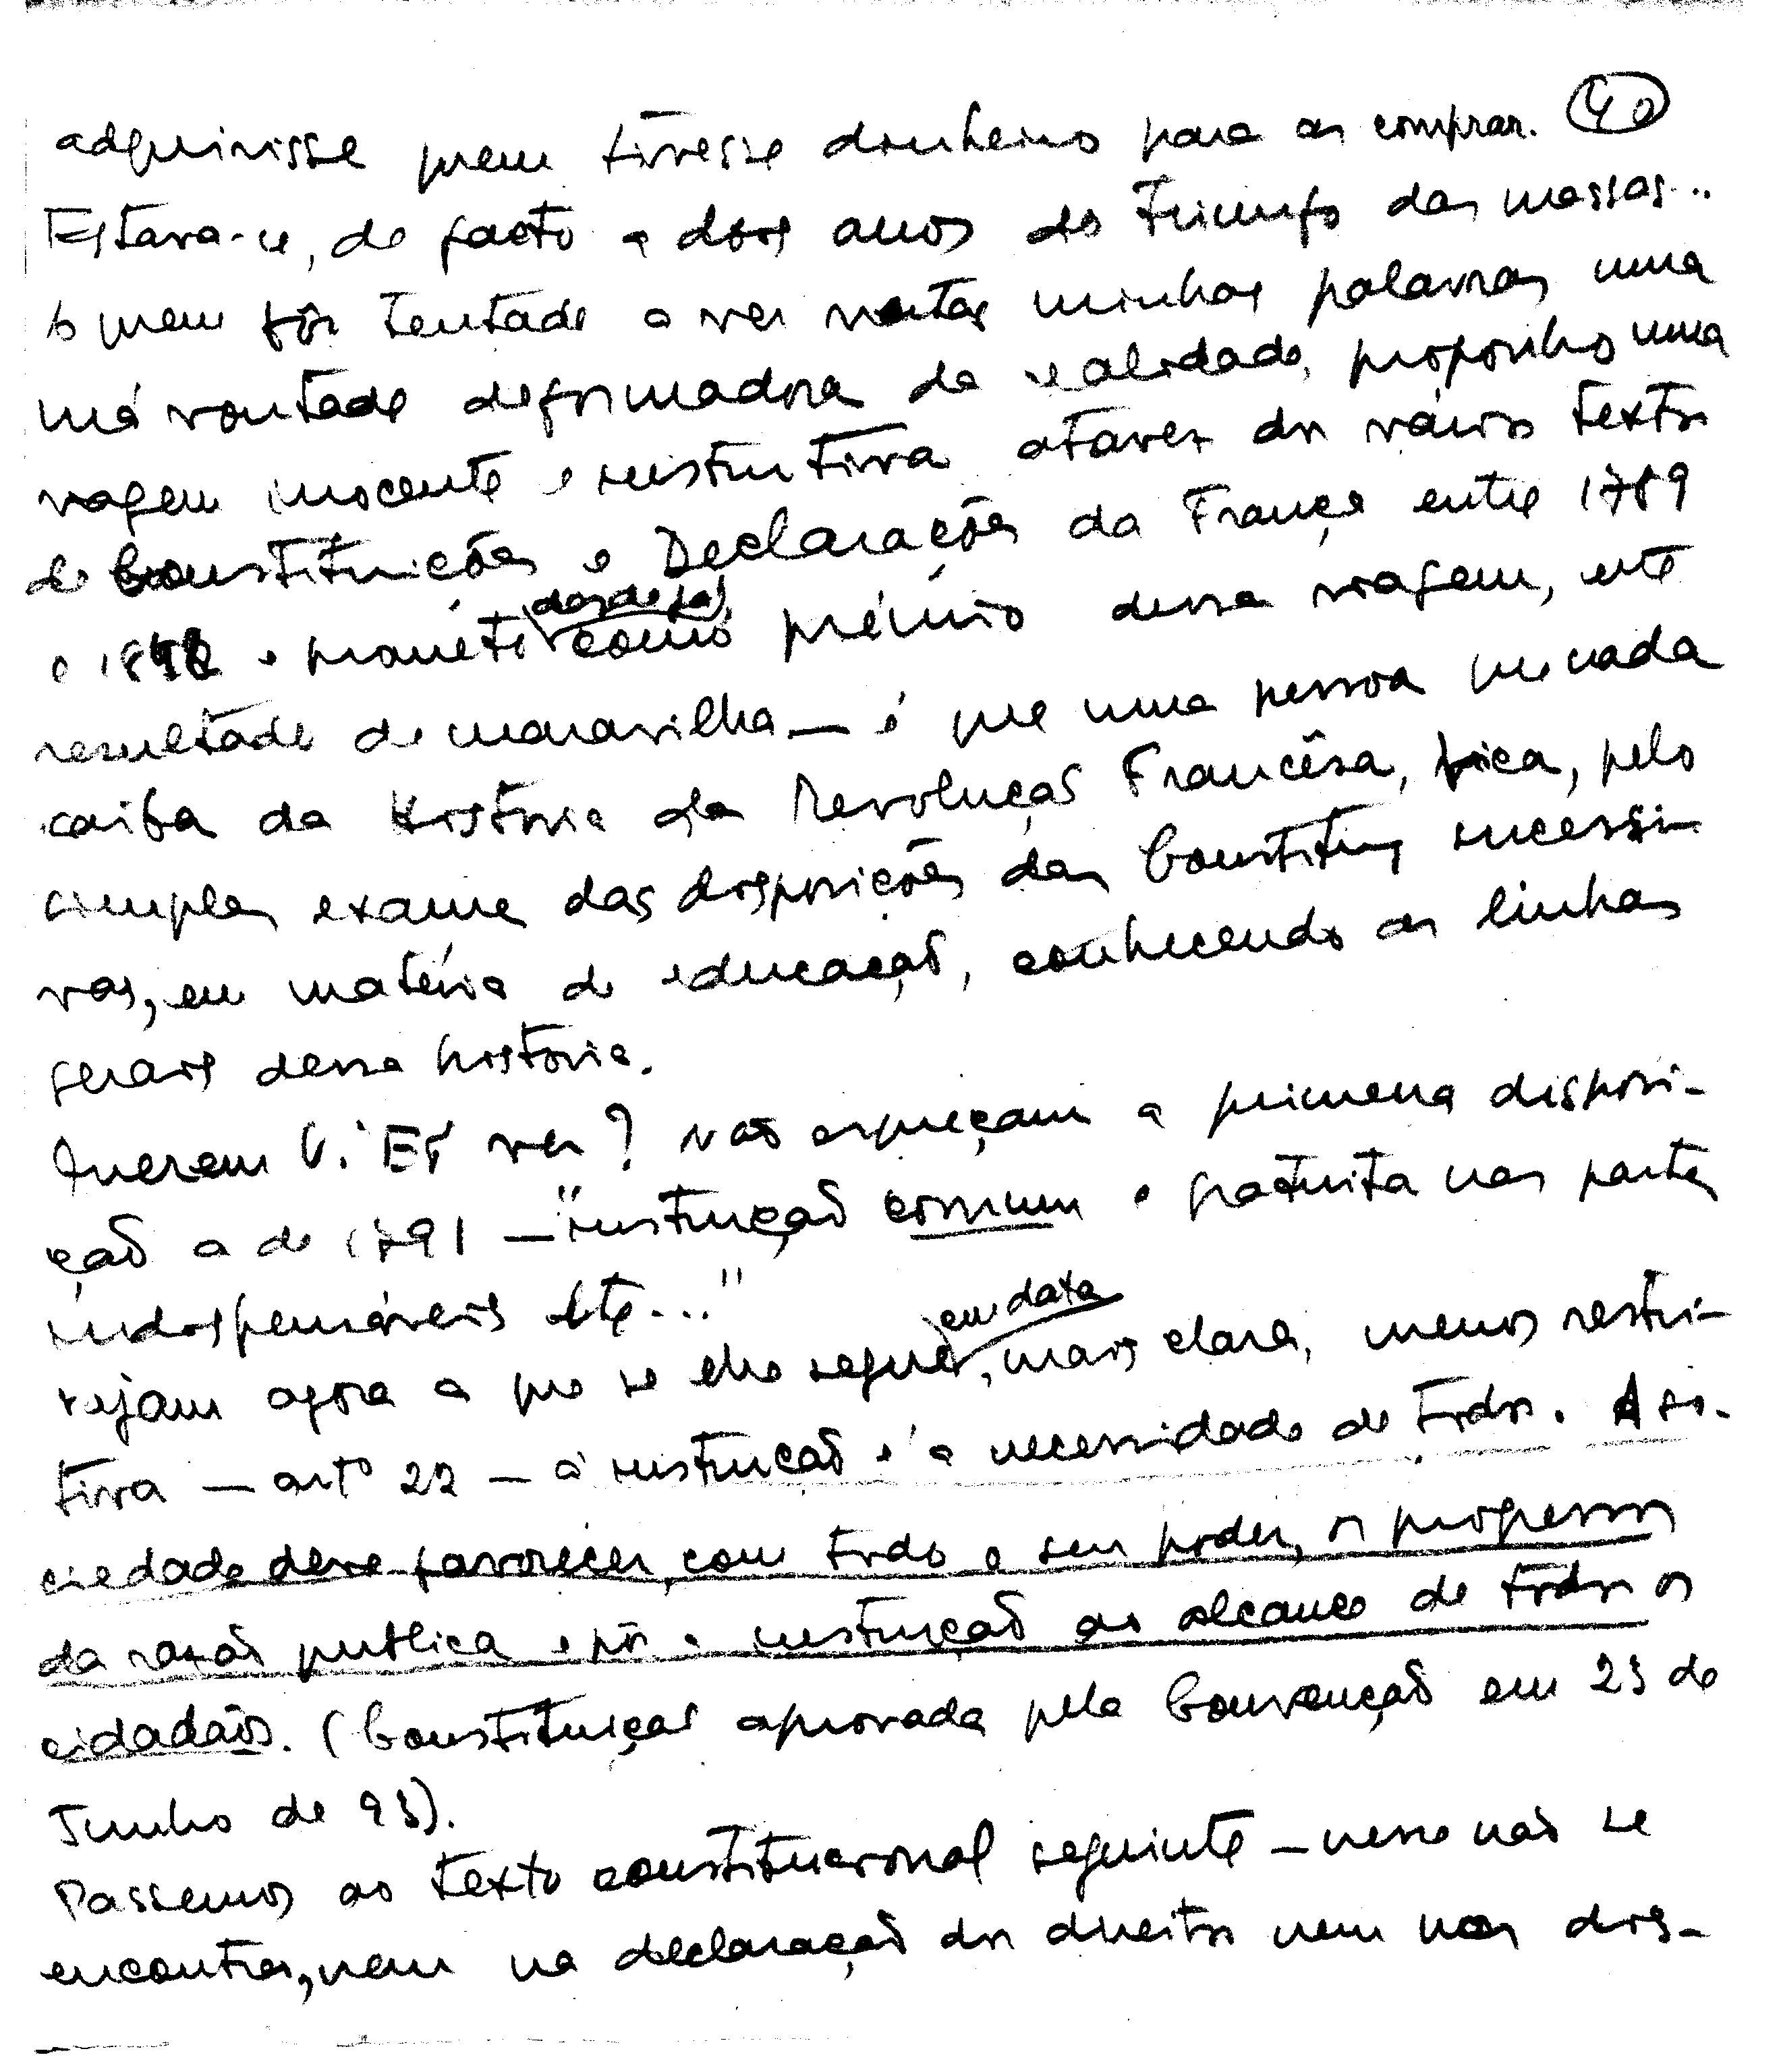 adquirisse quem tivesse dinheiro para as comprar. 40
Estava-se, de facto a dois anos do triunfo das massas...
E quem fôr tentado a ver nestas minhas palavras uma
má vontade deformadora da realidade, proponho uma
viagem inocente e instrutiva através dos vários textos
de Constituições e Declarações da França entre 1789
e 1848 e prometo desde já, como prémio dessa viagem, este
resultado de maravilha — é que uma pessoa que nada
saiba da História da Revolução Francêsa, fica, pelo
simples exame das disposições das Constituiç sucessi-
vas, em matéria de educação, conhecendo as linhas
gerais dessa história.
Querem V. Exª ver? Não esqueçam a primeira disposi-
ção a de 1791 — "instrução comum e gratuita nas partes
indispensáveis etc..."
Vejam agora a que se lhe segue em data, mais clara, menos restri-
tiva — artº 22 — a instrução é a necessidade de todos. A so-
ciedade deve favorecer, com todo o seu poder, os progressos
da razão publica e pôr a instrução ao alcance de todos os
cidadãos. (Constituição aprovada pela Convenção em 23 de
Junho de 93).
Passemos ao texto constitucional seguinte — nesse não se
encontra, nem na declaração dos direitos nem nas dis-